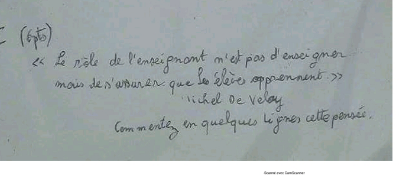 I (6pts)
« Le rôle de l'enseignant n'est pas d'enseigner
mais de s'assurer que les élèves apprennent. »
Michel De Velay
Commentez en quelques lignes cette pensée.
Scanné avec CamScanner